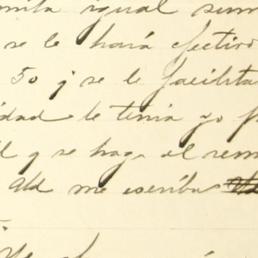 igual sum
se le hará efectivo
50 y se le facilita
idad le tenia yo
y se haga al rem
Ud me escriba